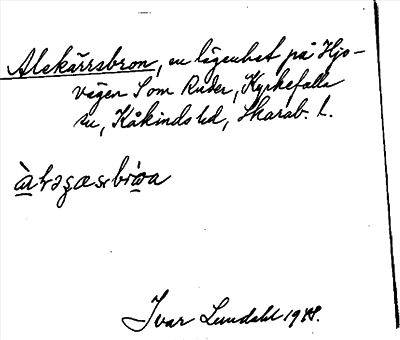 Alskärrsbron, en lägenhet på Hjo-
vägen S om Ruder, Kyrkefalla
sn, Kåkinds hd, Skarab. l.
Ivar Lundahl 1948.